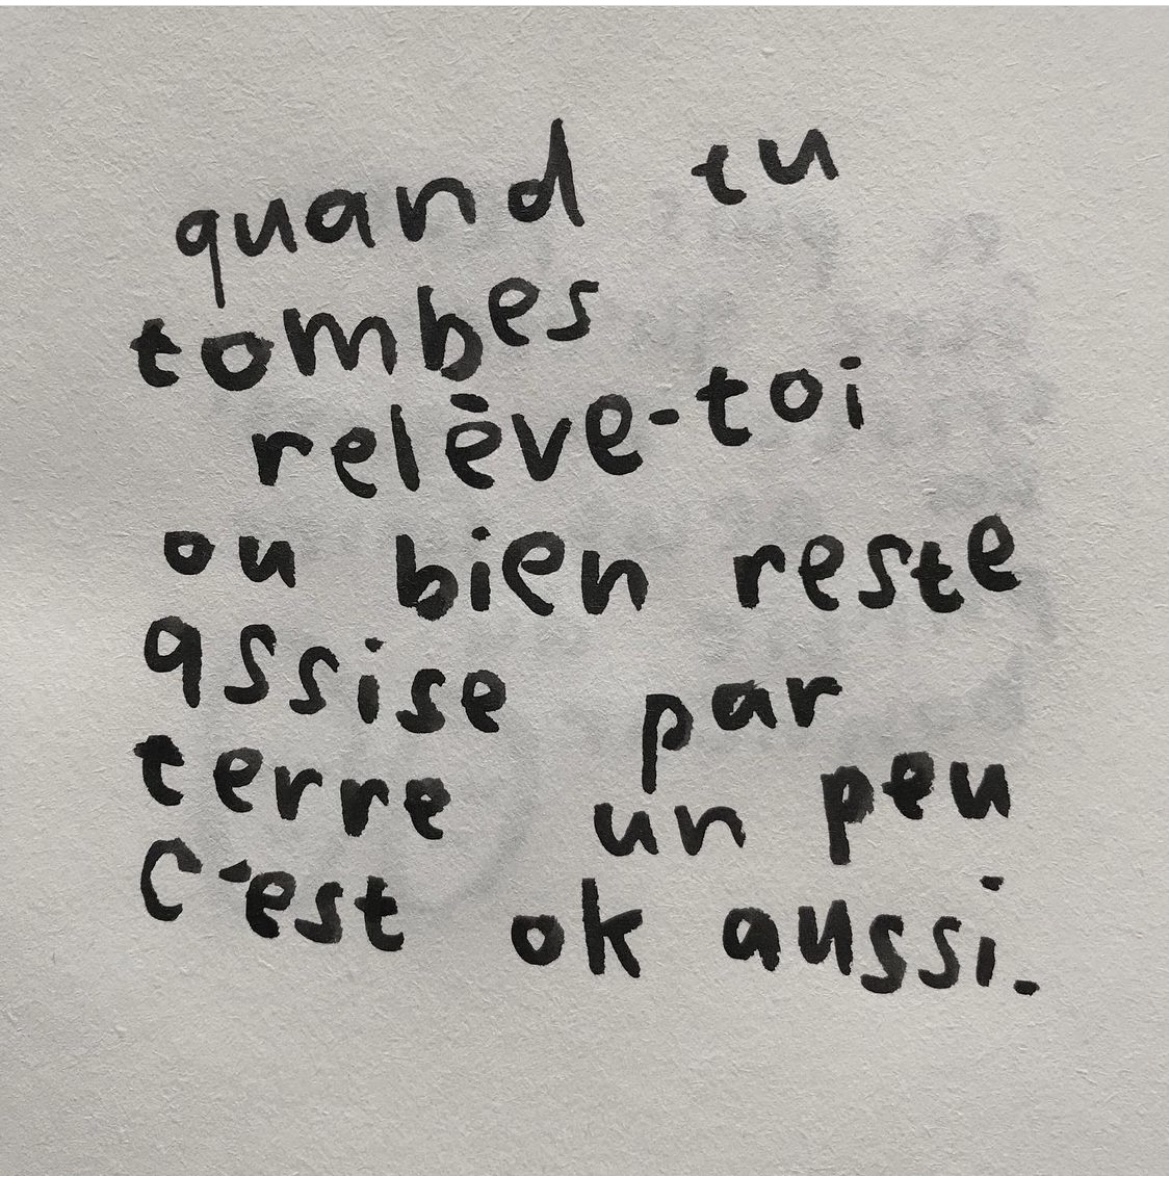 quand tu
tombes
relève-toi
ou bien reste
assise par
terre un peu
c'est ok aussi.